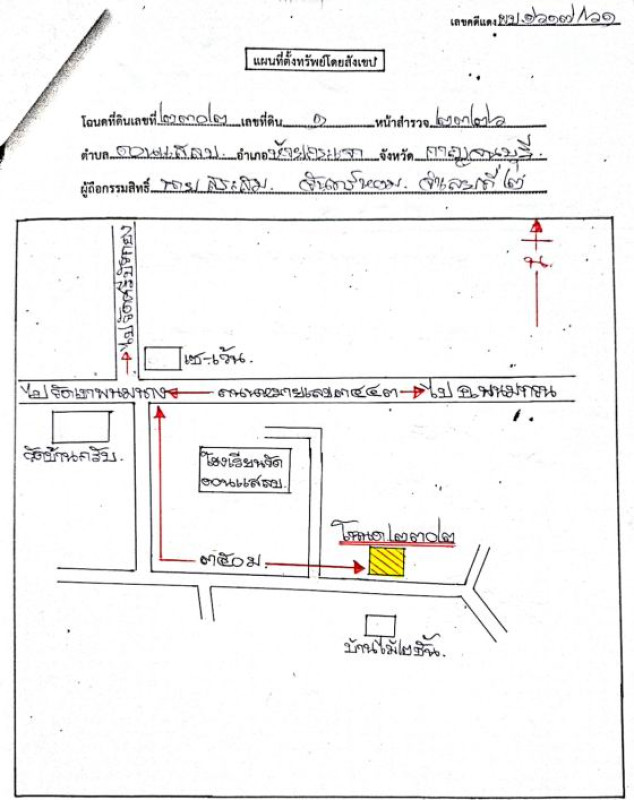 เลขคดีแดง ผบ.๒๖๑๗/๖๑
แผนที่ตั้งทรัพย์โดยสังเขป
โฉนดที่ดินเลขที่ ๒๓๐๒ เลขที่ดิน ๑ หน้าสำรวจ ๒๓๒๖
ตำบล ดอนแสลบ อำเภอ ห้วยกระเจา จังหวัด กาญจนบุรี.
ผู้ถือกรรมสิทธิ์ นาย จันทร์หอม. จำเลยที่ ๒
น.
เซเว่น.
ถนนหมายเลข ๓๔๔๓
ไป อ.พนมทวน
โรงเรียนวัด
ดอนแสลบ.
โฉนด ๒๓๐๒
๓๕๐ ม.
บ้านไม้ ๒ ชั้น.